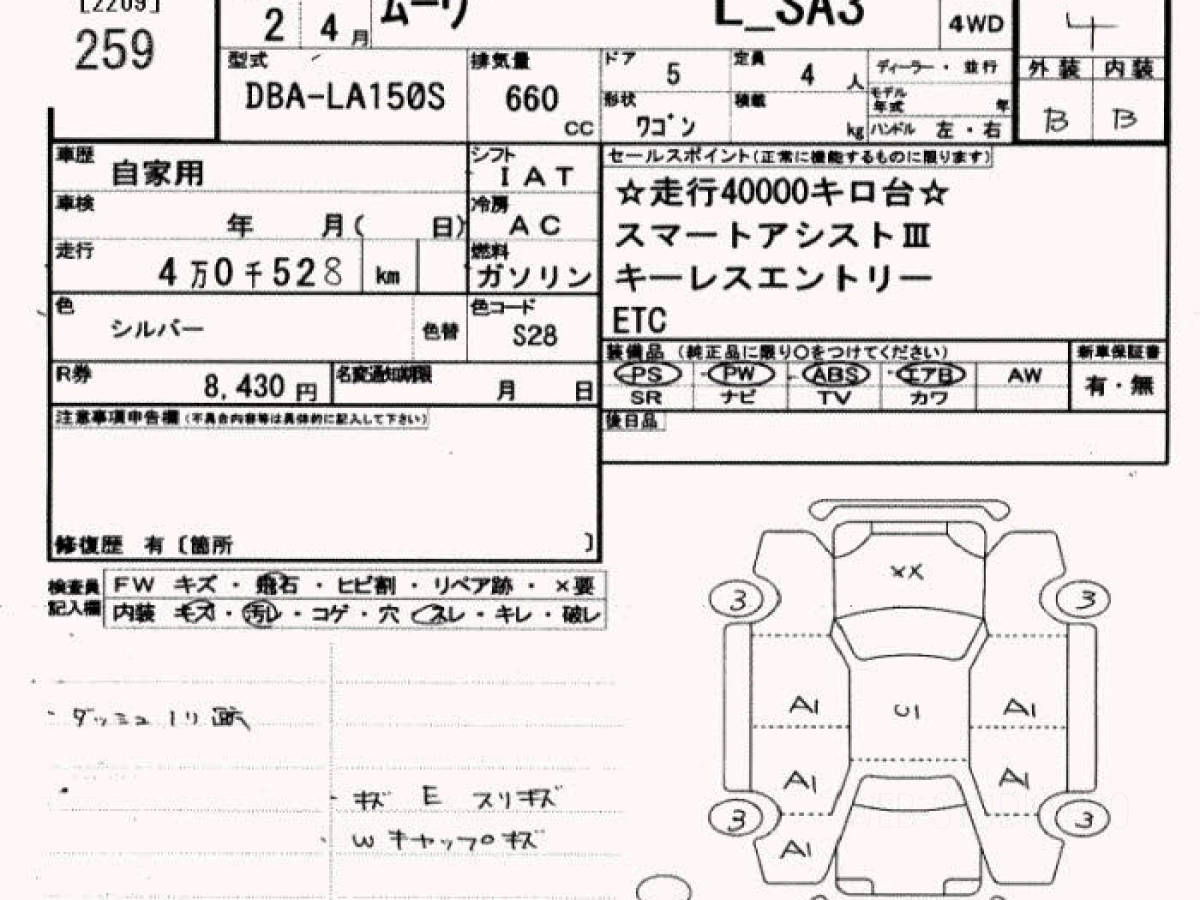 [2209]
259
2 4 月
ムーヴ L_SA3
4WD
4
型式 DBA-LA150S
排気量 660 CC
ドア 5
定員 4 人
形状 ワゴン
積載 kg
ディーラー・並行
モデル年式 年
ハンドル 左・右
外装 内装
B B
車歴 自家用
シフト IAT
車検 年 月( 日)
冷房 AC
走行 4万0千528 km
燃料 ガソリン
色 シルバー 色替
色コード S28
R券 8,430円
名変通知期限 月 日
セールスポイント(正常に機能するものに限ります)
☆走行40000キロ台☆
スマートアシストⅢ
キーレスエントリー
ETC
装備品 (純正品に限り○をつけてください)
PS PW ABS エアB AW
SR ナビ TV カワ
新車保証書
有・無
後日品
注意事項申告欄(不具合内容等は具体的に記入して下さい)
修復歴 有〔箇所 〕
検査員記入欄
FW キズ・飛石・ヒビ割・リペア跡・×要
内装 キズ・汚レ・コゲ・穴・スレ・キレ・破レ
キズ E スリキズ
W キャップキズ
XX
3 3
A1 U1 A1
A1 A1
3 3
A1